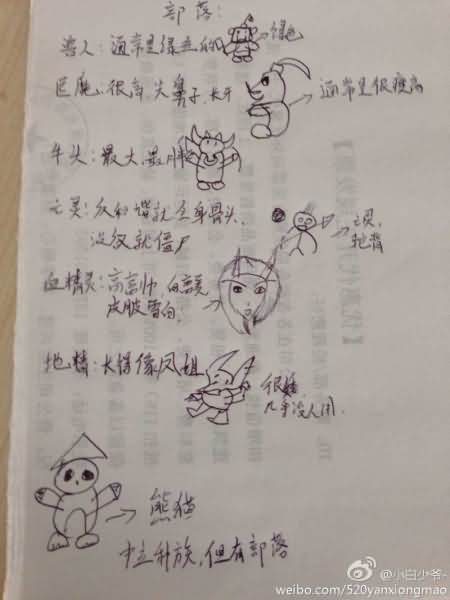 部落:
兽人: 通常是绿色的 绿色
巨魔: 很高, 尖鼻子, 长牙 通常是很瘦高
牛头: 最大, 最胖
亡灵: 众的谱就全身骨头, 亡灵,
没谱就僵尸
血精灵: 高富帅, 白富美
皮肤雪白.
地精: 长得像凤姐 很矮
几乎没人用.
熊猫
中立种族, 但有部落
@小白少爷-
weibo.com/520yanxiongmao